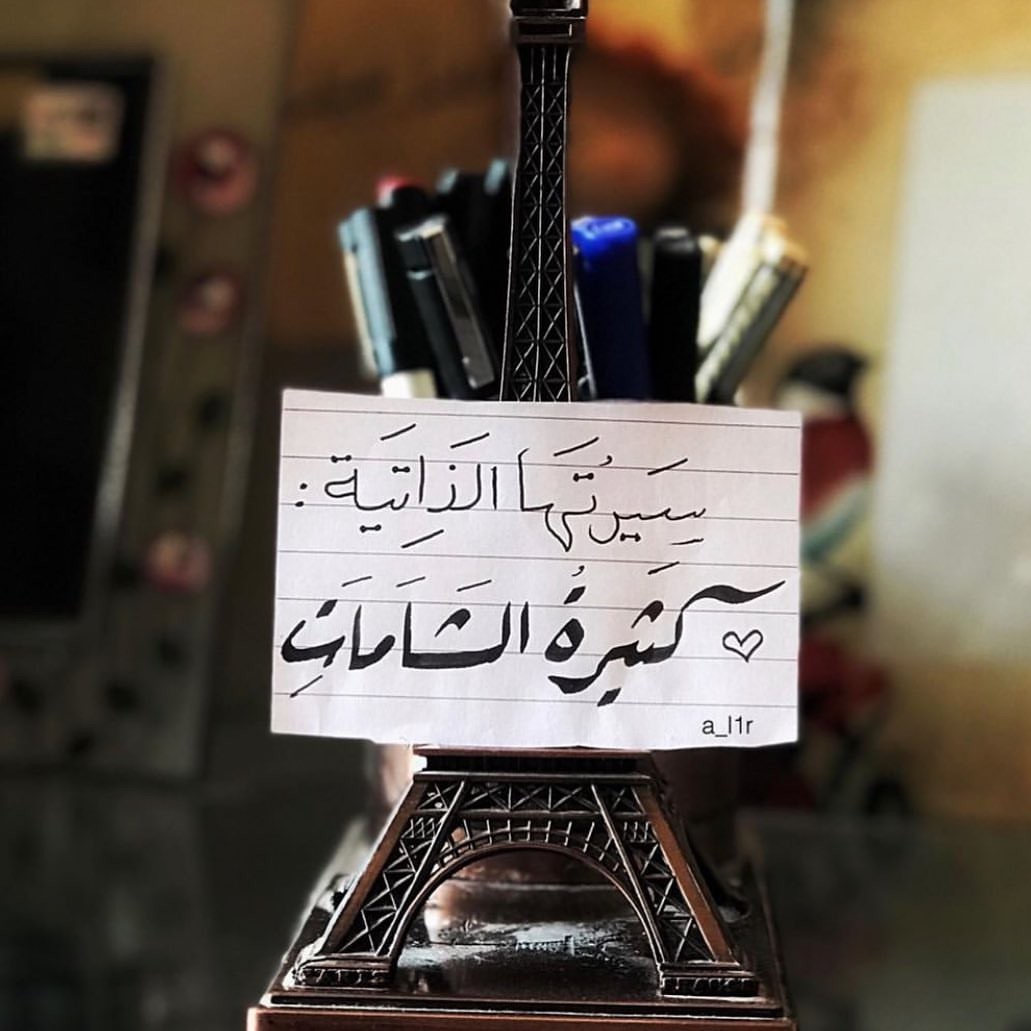 سَيِرتُهَا الذَاتِيَة :
كَثيرةُ الشَامَاتِ ♡
a_l1r